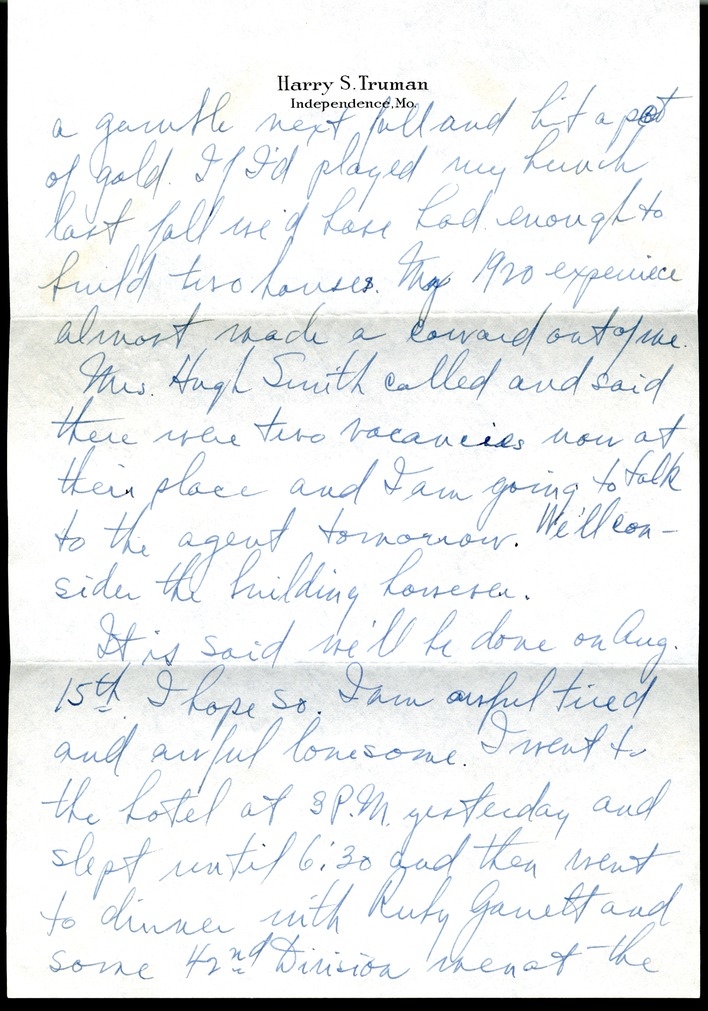 Harry S. Truman
Independence, Mo.
a gamble next fall and hit a pot
of gold. If I'd played my hunch
last fall we'd have had enough to
build two houses. My 1920 experience
almost made a coward out of me.
Mrs. Hugh Smith called and said
there were two vacancies now at
their place and I am going to talk
to the agent tomorrow. We'll con-
sider the building however.
It is said we'll be done on Aug.
15th I hope so. I am awful tired
and awful lonesome. I went to
the hotel at 3 P.M. yesterday and
slept until 6:30 and then went
to dinner with Ruby Garrett and
some 42nd Division men at the